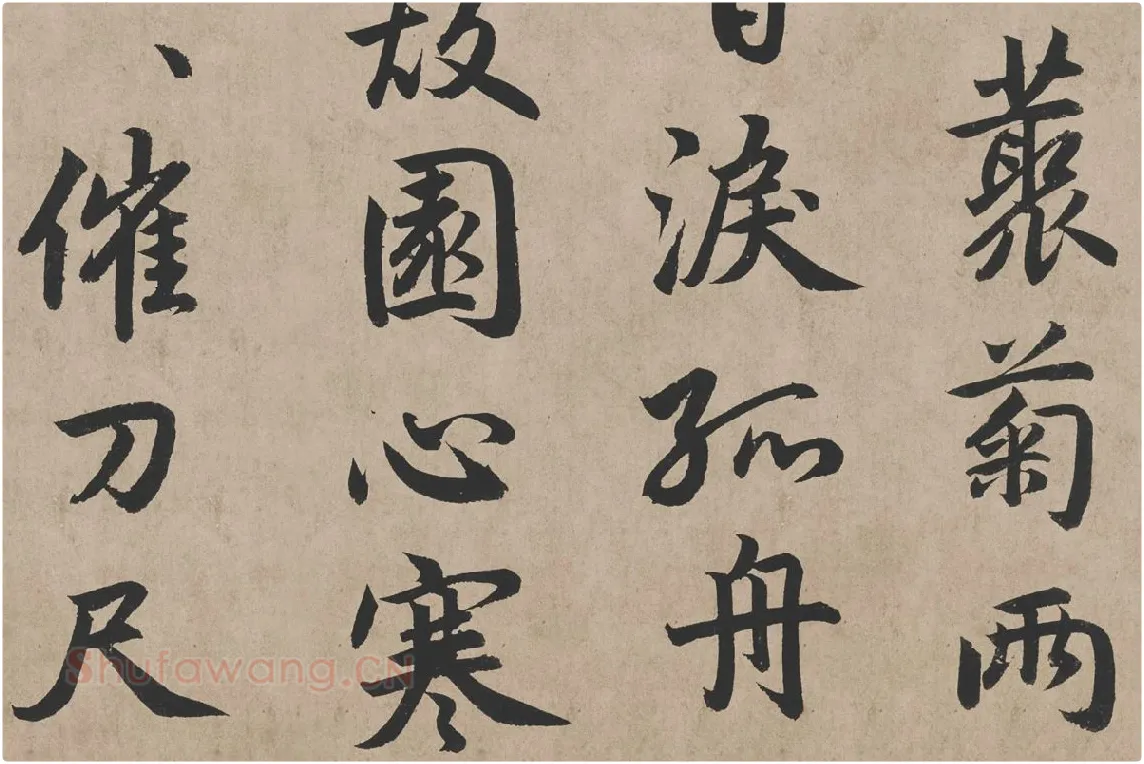 叢菊兩
日淚孤舟
故園心寒
、催刀尺
Shufawang.CN